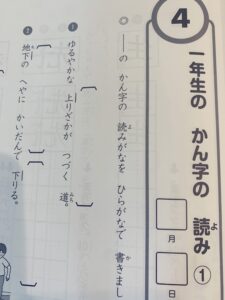 4
一年生の かん字の 読み①
月
日
◎ ──の かん字の 読みがなを ひらがなで 書きまし
よ
か
❶ ゆるやかな 上りざかが つづく 道。
みち
❷ 地下の へやに かいだんで 下りる。